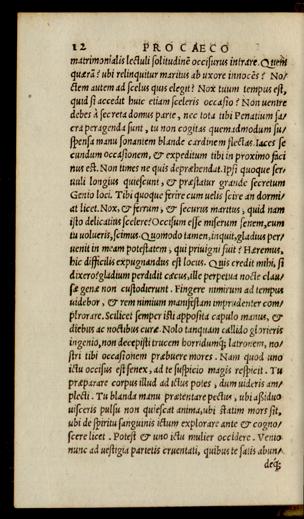 12 PRO CAECO
matrimonialis lectuli solitudinē occisurus intrare. Quem
quærā? ubi relinquitur maritus ab uxore innocēs? No/
ctem autem ad scelus quis elegit? Nox tuum tempus est,
quid si accedit huic etiam sceleris occasio? Non uentre
debes à secreta domus parte, nec tota tibi Penatium sa/
cra peragenda sunt, tu non cogitas quemadmodum su/
spensa manu sonantem blande cardinem flectas. Iaces se
cundum occasionem, & expeditum tibi in proximo faci
nus est. Non times ne quis depræhendat. Ipsi quoque ser/
uuli longius quiescunt, & præstatur grande secretum
Genio loci. Tibi quoque ferire cum uelis scire an dormi/
at licet. Nox, & ferrum, & securus maritus, quid nam
isto delicatius scelere? Occisum esse miserum senem, cum
tu uolueris, scimus. Quomodo tamen, inquit, gladius per/
uenit in meam potestatem, qui priuigni fuit? Hæremus,
hic difficilis expugnandus est locus. Quis credit mihi, si
dixero? gladium perdidit cæcus, ille perpetua nocte clau/
sæ genæ non custodierunt. Fingere nimirum ad tempus
uidebor, & rem nimium manifestam imprudenter com/
plorare. Scilicet semper isti apposita capulo manus, &
diebus ac noctibus curæ. Nolo tanquam callido glorieris
ingenio, non decepisti trucem horridumq; latronem, no/
stri tibi occasionem præbuere mores. Nam quod uno
ictu occisus est senex, ad te suspicio magis respicit. Tu
præparare corpus illud ad ictus potes, dum uideris am/
plecti. Tu blanda manu prætentare pectus, ubi aßiduo
uisceris pulsu non quiescat anima, ubi statim mors sit,
ubi de spiritu sanguinis ictum explorare ante & cogno/
scere licet. Potest & uno ictu mulier occidere. Venio
nunc ad uestigia parietis cruentati, quibus te satis abun/
deq;